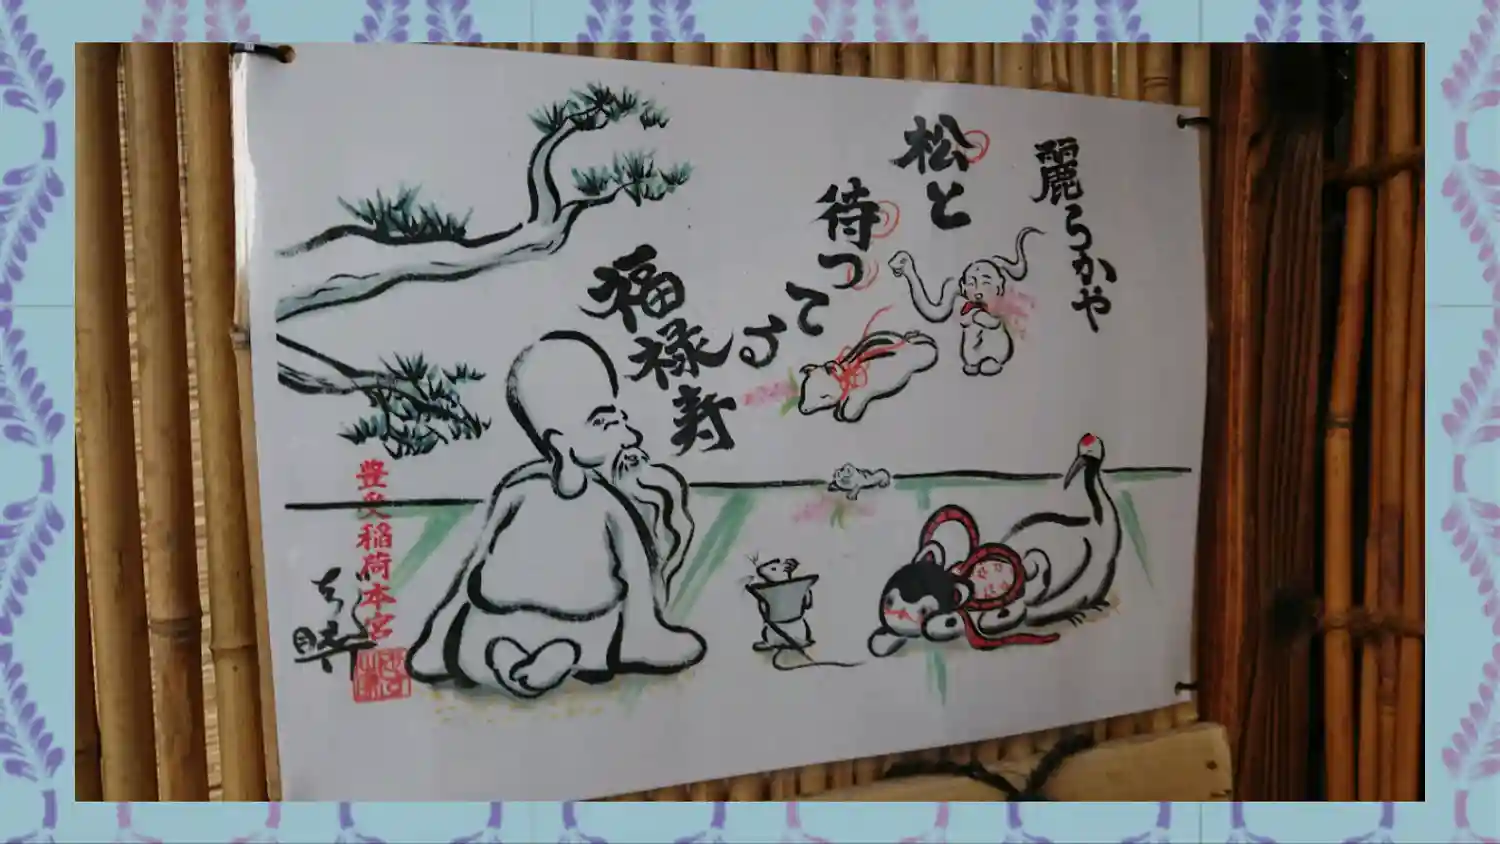 麗らかや
松と
待ってる
福禄寿
豊受稲荷本宮